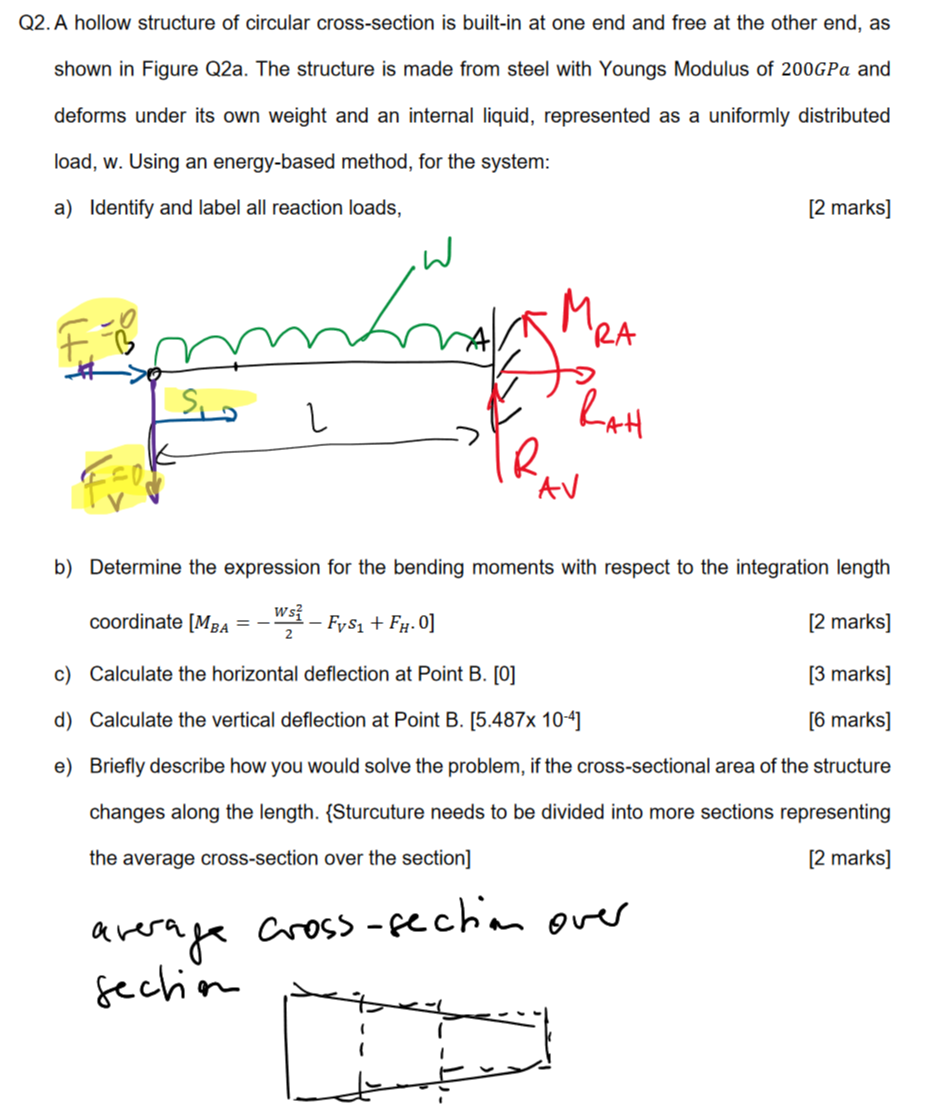 Q2. A hollow structure of circular cross-section is built-in at one end and free at the other end, as
shown in Figure Q2a. The structure is made from steel with Youngs Modulus of 200GPa and
deforms under its own weight and an internal liquid, represented as a uniformly distributed
load, w. Using an energy-based method, for the system:
a) Identify and label all reaction loads, [2 marks]
W
F_H=0
B
A
M_RA
S_1
L
R_AH
F_V=0
R_AV
b) Determine the expression for the bending moments with respect to the integration length
coordinate [M_BA = − Ws_1^2/2 − F_V s_1 + F_H. 0] [2 marks]
c) Calculate the horizontal deflection at Point B. [0] [3 marks]
d) Calculate the vertical deflection at Point B. [5.487x 10^-4] [6 marks]
e) Briefly describe how you would solve the problem, if the cross-sectional area of the structure
changes along the length. {Sturcuture needs to be divided into more sections representing
the average cross-section over the section] [2 marks]
average cross-section over
section